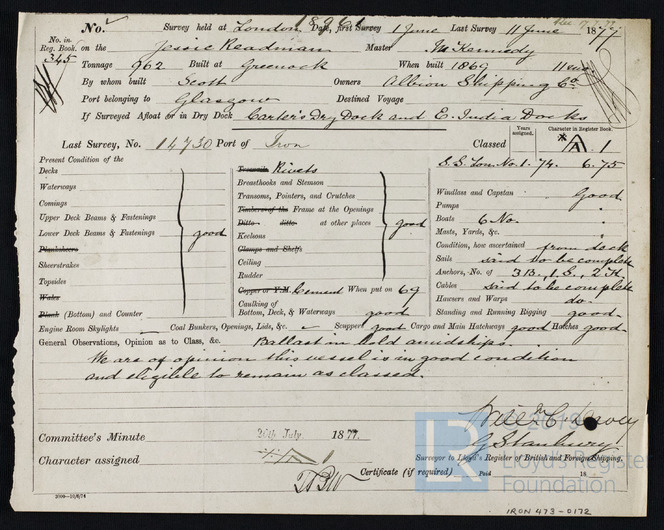 No. Survey held at London Date, first Survey 1 June Last Survey 11 June 1877
No. in Reg. Book. 345 on the Jessie Readman Master McKennedy
Tonnage 962 Built at Greenock When built 1869
By whom built Scott Owners Albion Shipping Co.
Port belonging to Glasgow Destined Voyage
If Surveyed Afloat or in Dry Dock Carter's Dry Dock and E. India Docks
Years assigned. Character in Register Book.
Last Survey, No. 14730 Port of Iron Classed A 1
S.S. Lon. No. 1. 74. 6.75
Present Condition of the
Decks
Waterways
Comings
Upper Deck Beams & Fastenings
Lower Deck Beams & Fastenings
Planksheers
Sheerstrakes
Topsides
Wales
Plank (Bottom) and Counter
good
Treenails Rivets
Breasthooks and Stemson
Transoms, Pointers, and Crutches
Timbers of the Frame at the Openings
Ditto ditto at other places
Keelsons
Clamps and Shelfs
Ceiling
Rudder
good
Copper or Y.M. Cement When put on 69
Caulking of Bottom, Deck, & Waterways good
Windlass and Capstan Good
Pumps
Boats 6 No.
Masts, Yards, &c.
Condition, how ascertained from deck
Sails said to be complete
Anchors, No. of 3 B, 1 S, 2 K
Cables said to be complete
Hawsers and Warps do.
Standing and Running Rigging good
Engine Room Skylights Coal Bunkers, Openings, Lids, &c. Scuppers good Cargo and Main Hatchways good Hatches good
General Observations, Opinion as to Class, &c. Ballast in hold amidships.
We are of opinion this vessel is in good condition
and eligible to remain as classed.
G Stanbury
Surveyor to Lloyd's Register of British and Foreign Shipping.
Committee's Minute 20th July 1877.
Character assigned A 1
Certificate (if required) Paid 18
2000—10/6/74
IRON 473-0172
LR
© 2019
Lloyd's Register
Foundation